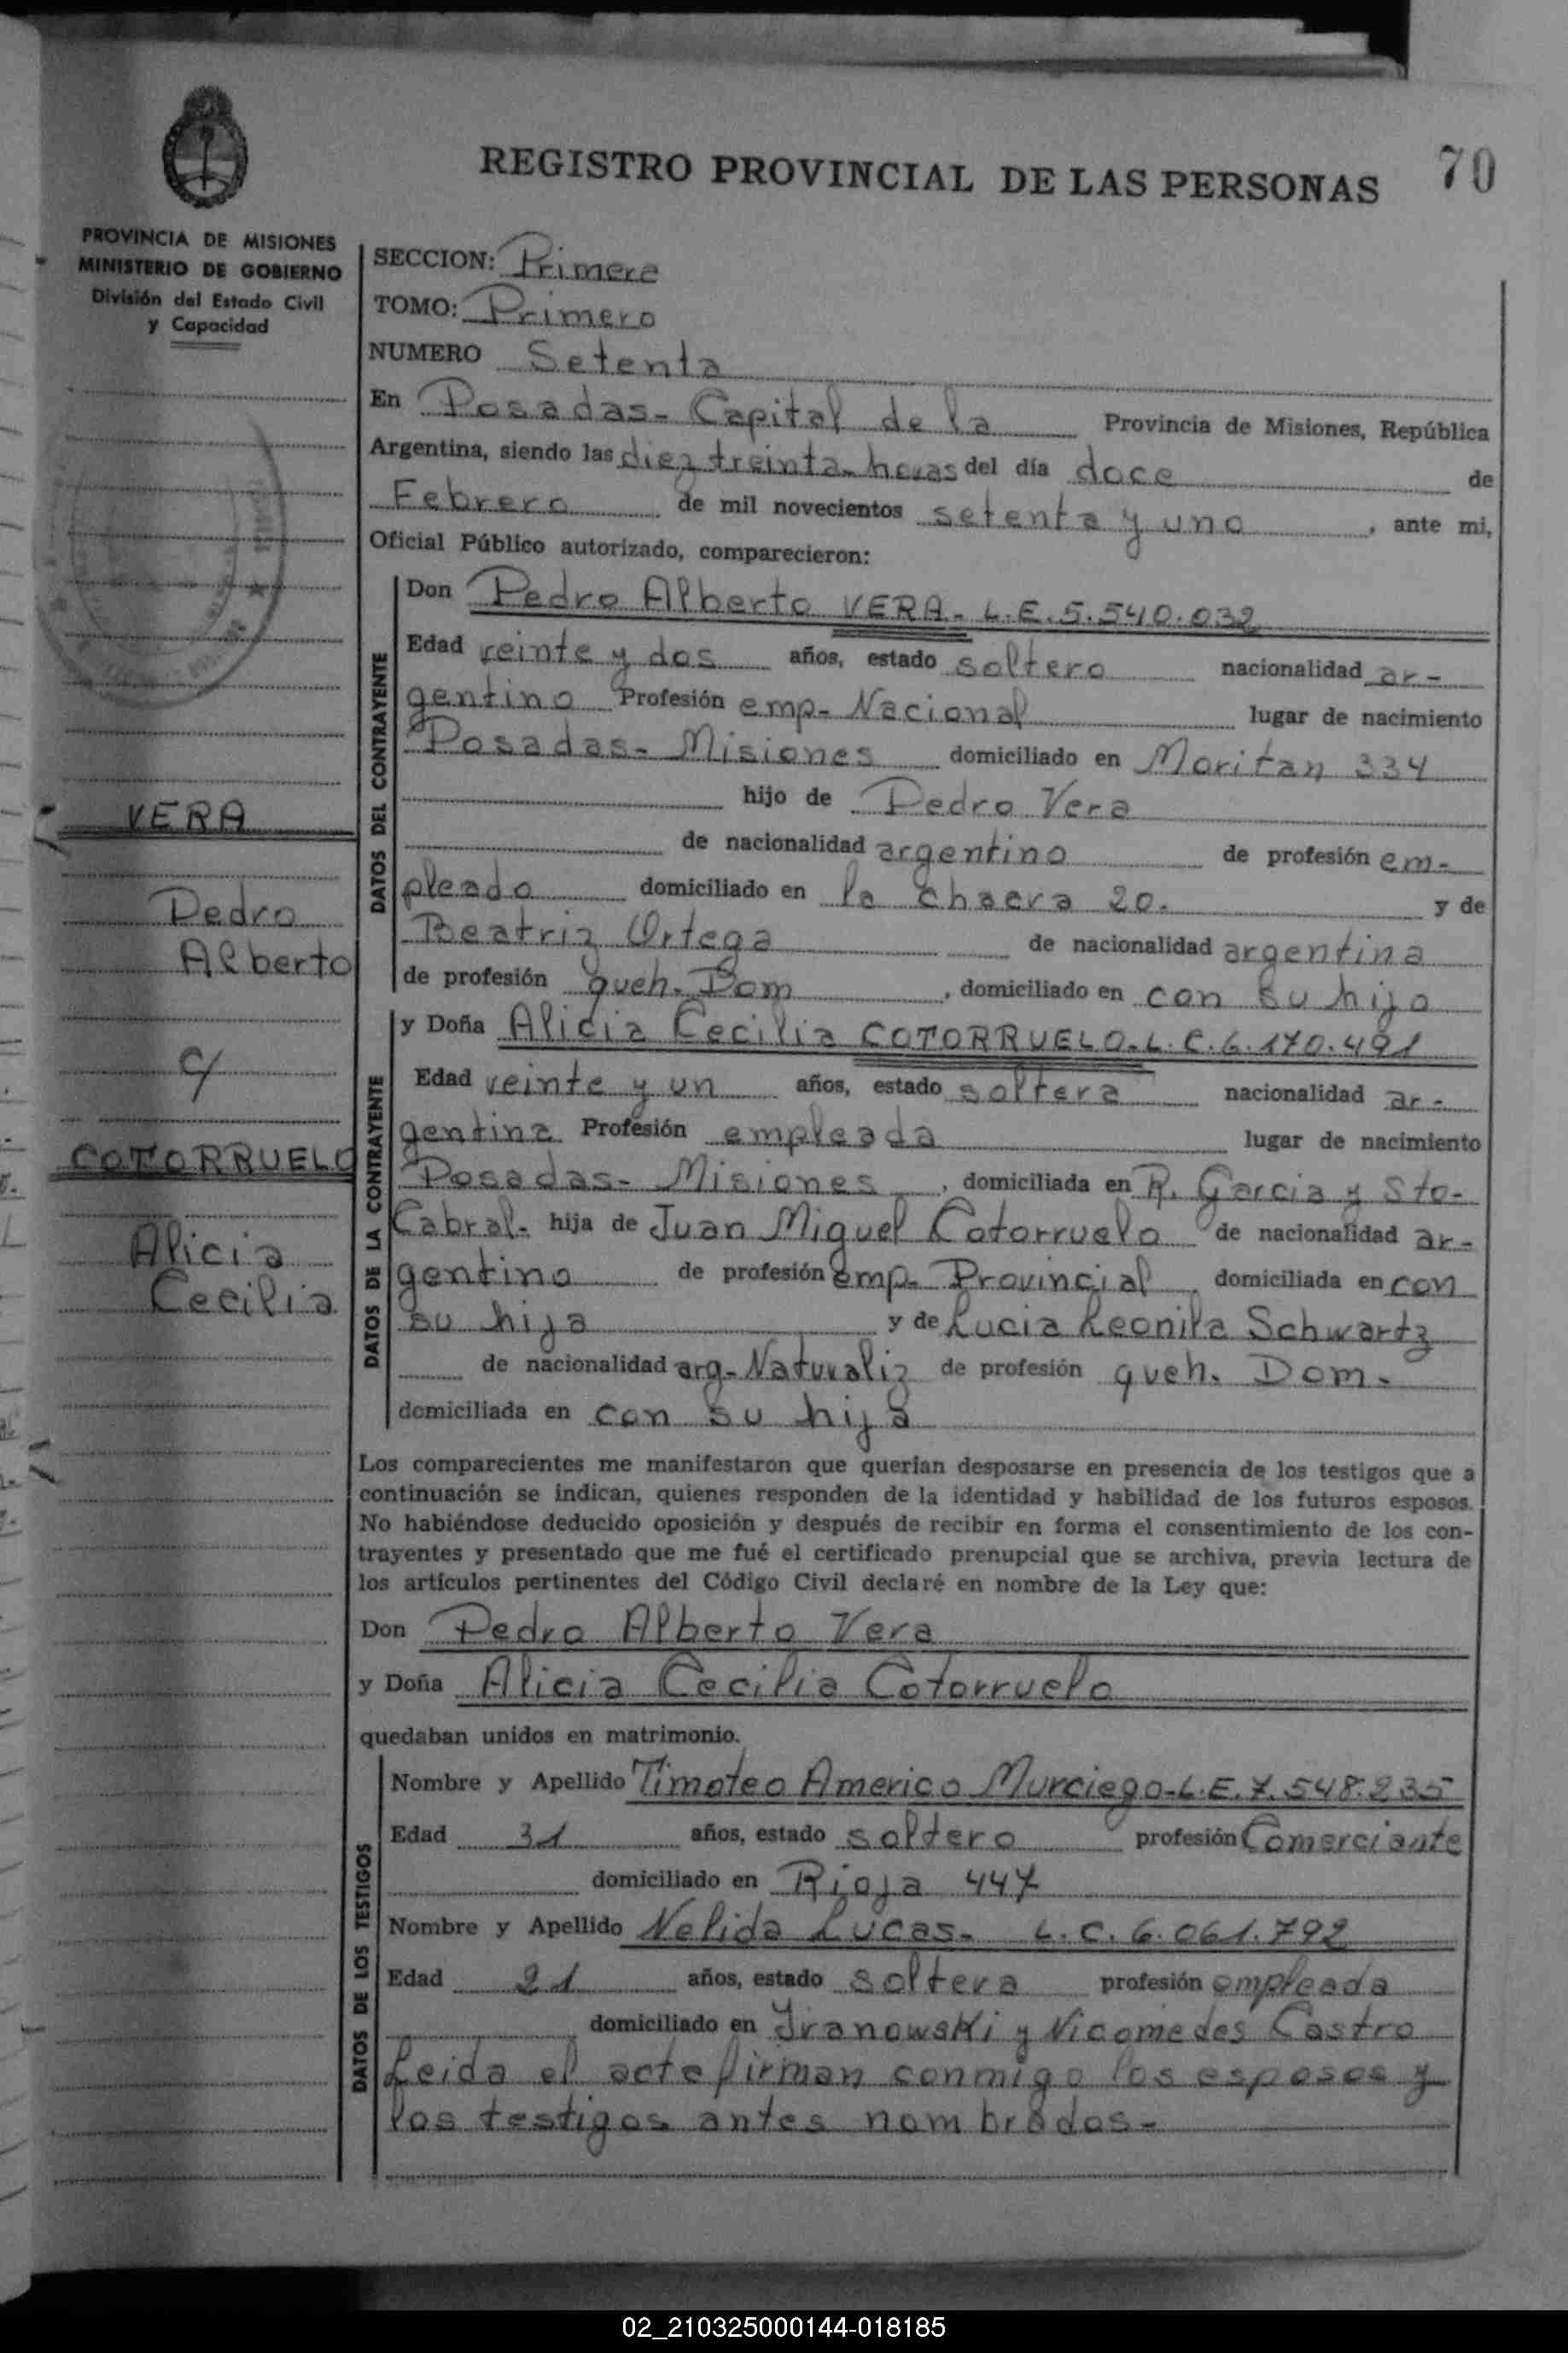 REGISTRO PROVINCIAL DE LAS PERSONAS
70
PROVINCIA DE MISIONES
MINISTERIO DE GOBIERNO
División del Estado Civil
y Capacidad
VERA
Pedro
Alberto
c/
COTORRUELO
Alicia
Cecilia
SECCION: Primera
TOMO: Primero
NUMERO Setenta
En Posadas- Capital de la Provincia de Misiones, República
Argentina, siendo las diez treinta horas del día doce de
Febrero de mil novecientos setenta y uno, ante mi,
Oficial Público autorizado, comparecieron:
DATOS DEL CONTRAYENTE
Don Pedro Alberto VERA- L.E. 5.540.032
Edad veinte y dos años, estado soltero nacionalidad ar-
gentino Profesión emp- Nacional lugar de nacimiento
Posadas- Misiones domiciliado en Moritan 334
hijo de Pedro Vera
de nacionalidad argentino de profesión em-
pleado domiciliado en la chacra 20. y de
Beatriz Ortega de nacionalidad argentina
de profesión queh. Dom, domiciliado en con su hijo
DATOS DE LA CONTRAYENTE
y Doña Alicia Cecilia COTORRUELO- L.C. 6.170.491
Edad veinte y un años, estado soltera nacionalidad ar-
gentina Profesión empleada lugar de nacimiento
Posadas- Misiones, domiciliada en R. Garcia y Sto-
Cabral- hija de Juan Miguel Cotorruelo de nacionalidad ar-
gentino de profesión emp- Provincial domiciliada en con
su hija y de Lucia Leonila Schwartz
de nacionalidad arg- Naturaliz de profesión queh. Dom-
domiciliada en con su hija
Los comparecientes me manifestaron que querían desposarse en presencia de los testigos que a
continuación se indican, quienes responden de la identidad y habilidad de los futuros esposos.
No habiéndose deducido oposición y después de recibir en forma el consentimiento de los con-
trayentes y presentado que me fué el certificado prenupcial que se archiva, previa lectura de
los artículos pertinentes del Código Civil declaré en nombre de la Ley que:
Don Pedro Alberto Vera
y Doña Alicia Cecilia Cotorruelo
quedaban unidos en matrimonio.
DATOS DE LOS TESTIGOS
Nombre y Apellido Timoteo Americo Murciego- L.E. 7.548.235
Edad 31 años, estado soltero profesión Comerciante
domiciliado en Rioja 447
Nombre y Apellido Nelida Lucas- L.C. 6.061.792
Edad 21 años, estado soltera profesión empleada
domiciliado en Iranowski y Nicomedes Castro
Leida el acta firman conmigo los esposos y
los testigos antes nombrados-
02_210325000144-018185